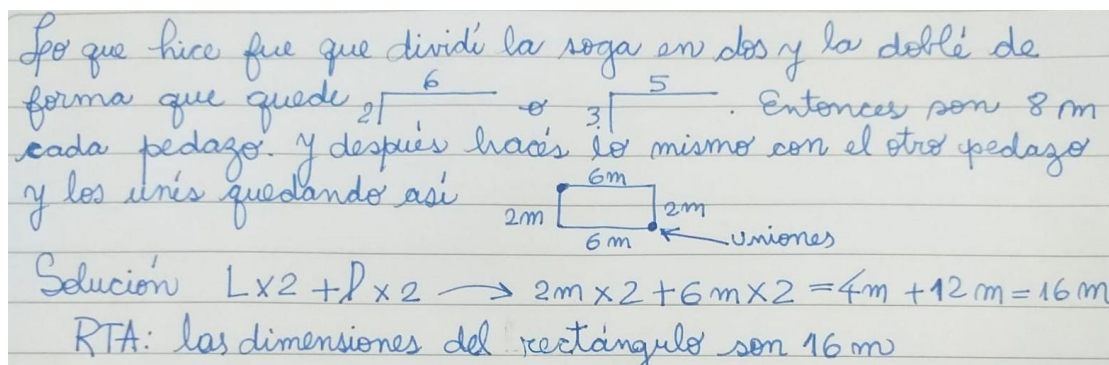 Lo que hice fue que dividí la soga en dos y la doblé de
forma que quede 2 6 o 3 5 . Entonces son 8 m
cada pedazo. y después hacés lo mismo con el otro pedazo
y los unís quedando así 6m 2m 2m 6m uniones
Solución L×2 + l×2 → 2m×2+6m×2=4m+12m=16m
RTA: las dimensiones del rectángulo son 16 m